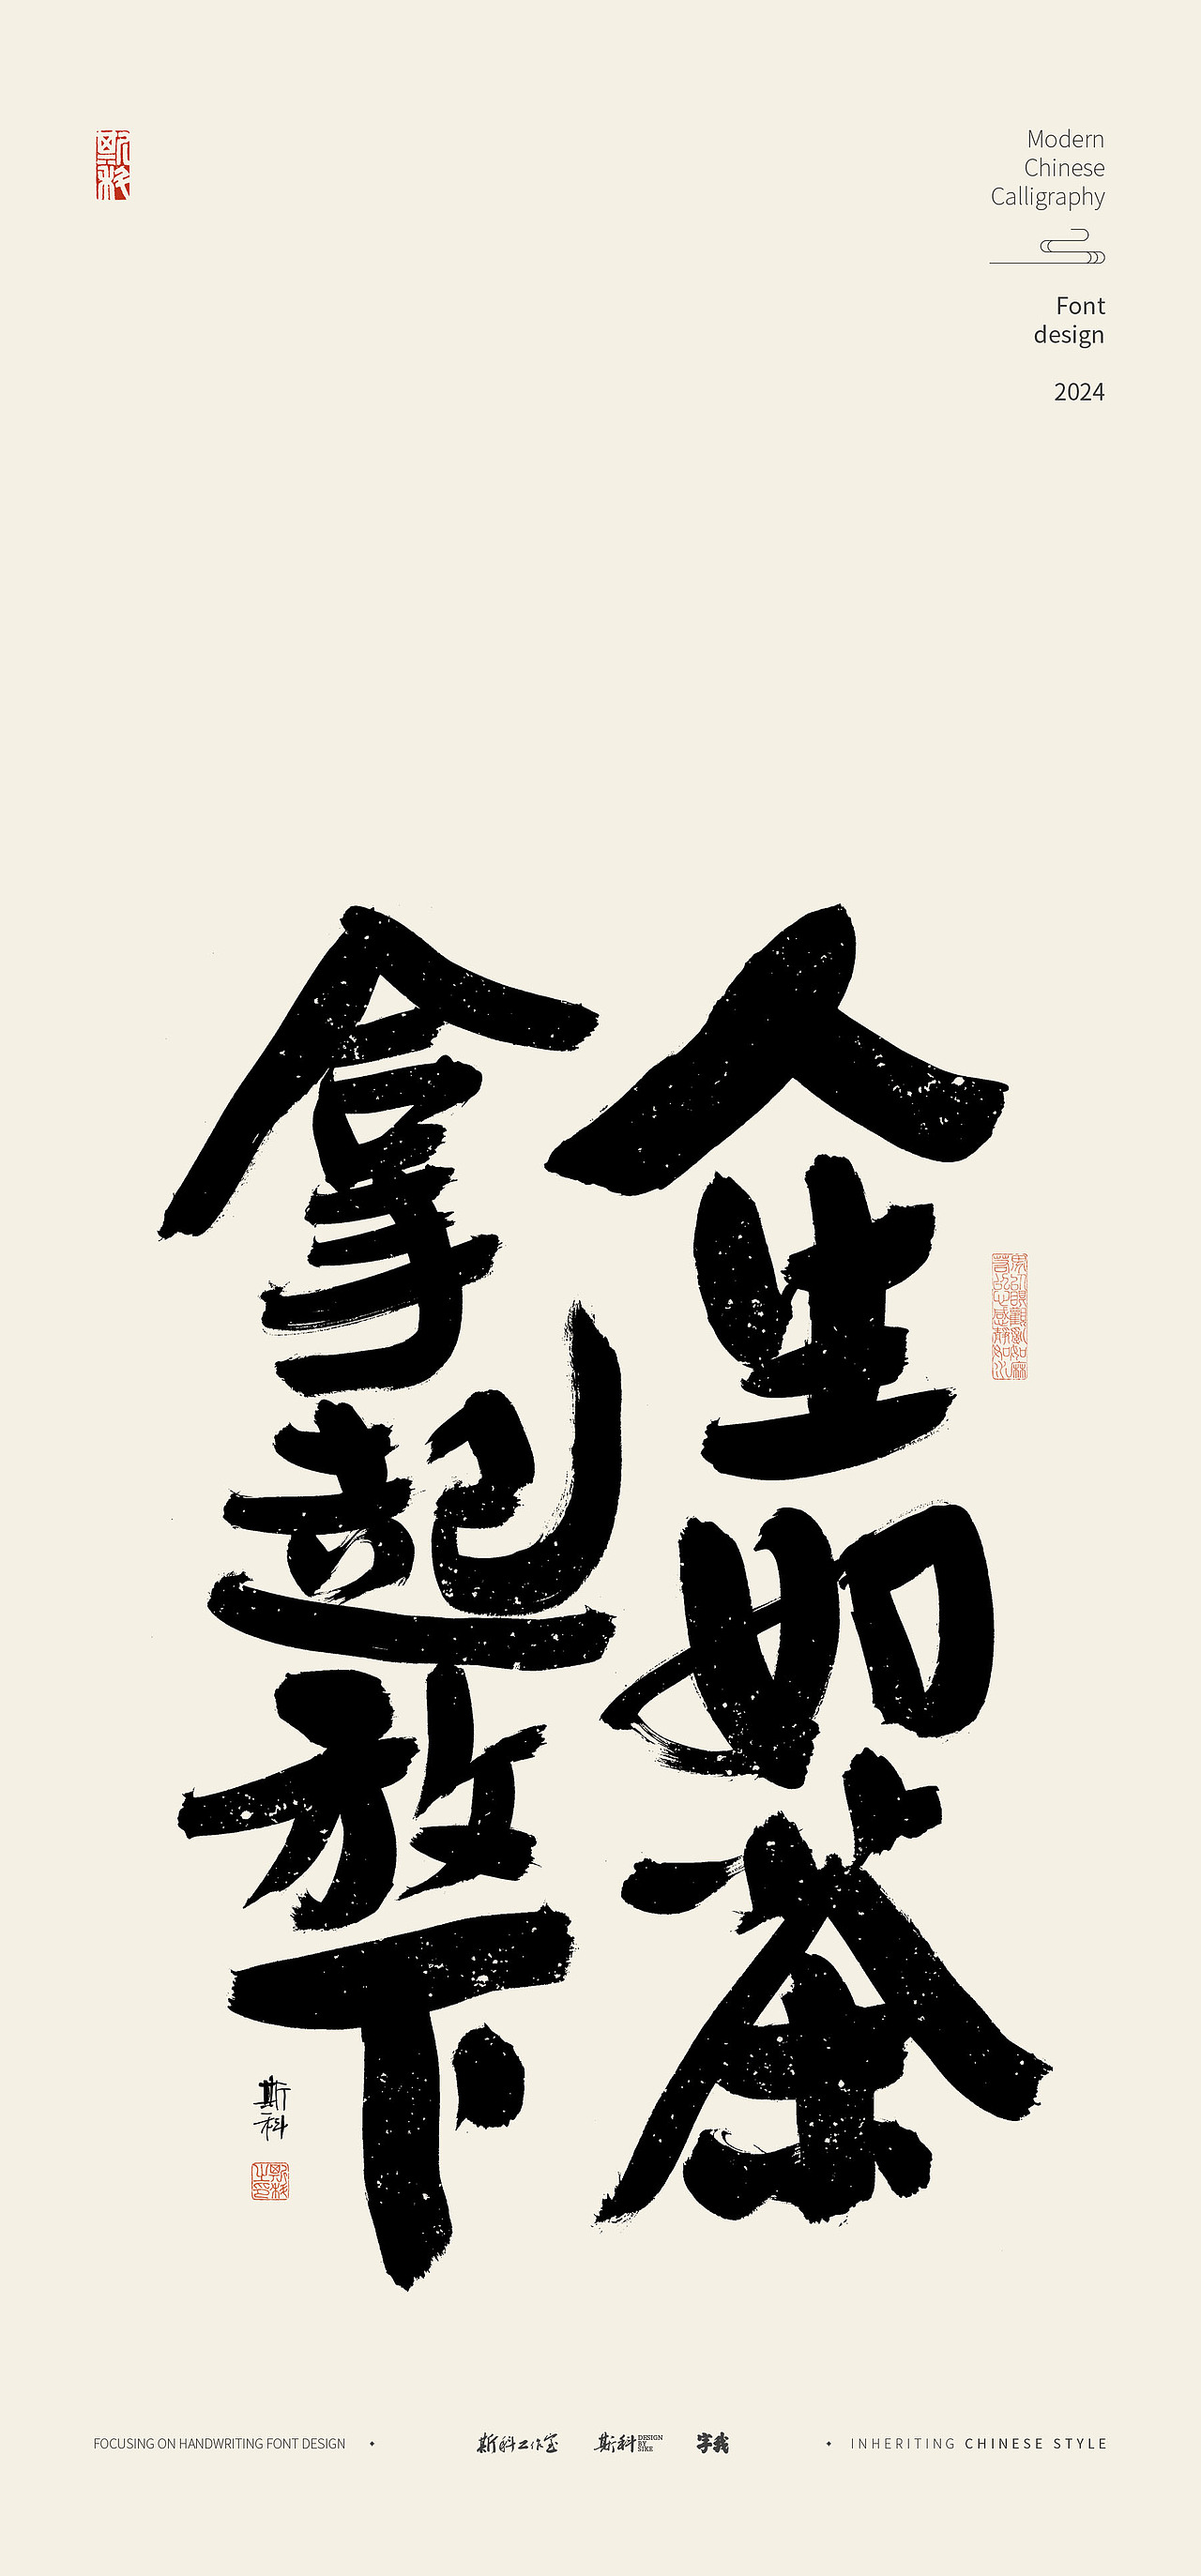 Modern
Chinese
Calligraphy
Font
design
2024
人生如茶
拿起放下
斯科
FOCUSING ON HANDWRITING FONT DESIGN
斯科工作室
斯科
DESIGN
BY
SIKE
字我
INHERITING CHINESE STYLE